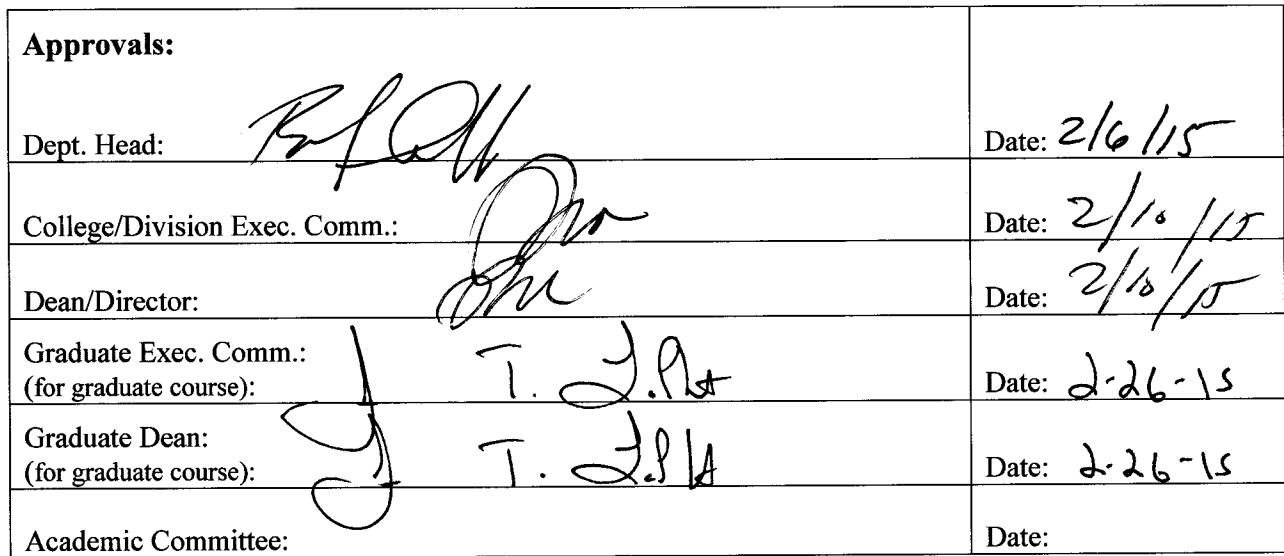 Approvals:
Dept. Head: Date: 2/6/15
College/Division Exec. Comm.: Date: 2/10/15
Dean/Director: Date: 2/10/15
Graduate Exec. Comm.:
(for graduate course): Date: 2-26-15
Graduate Dean:
(for graduate course): Date: 2-26-15
Academic Committee: Date: